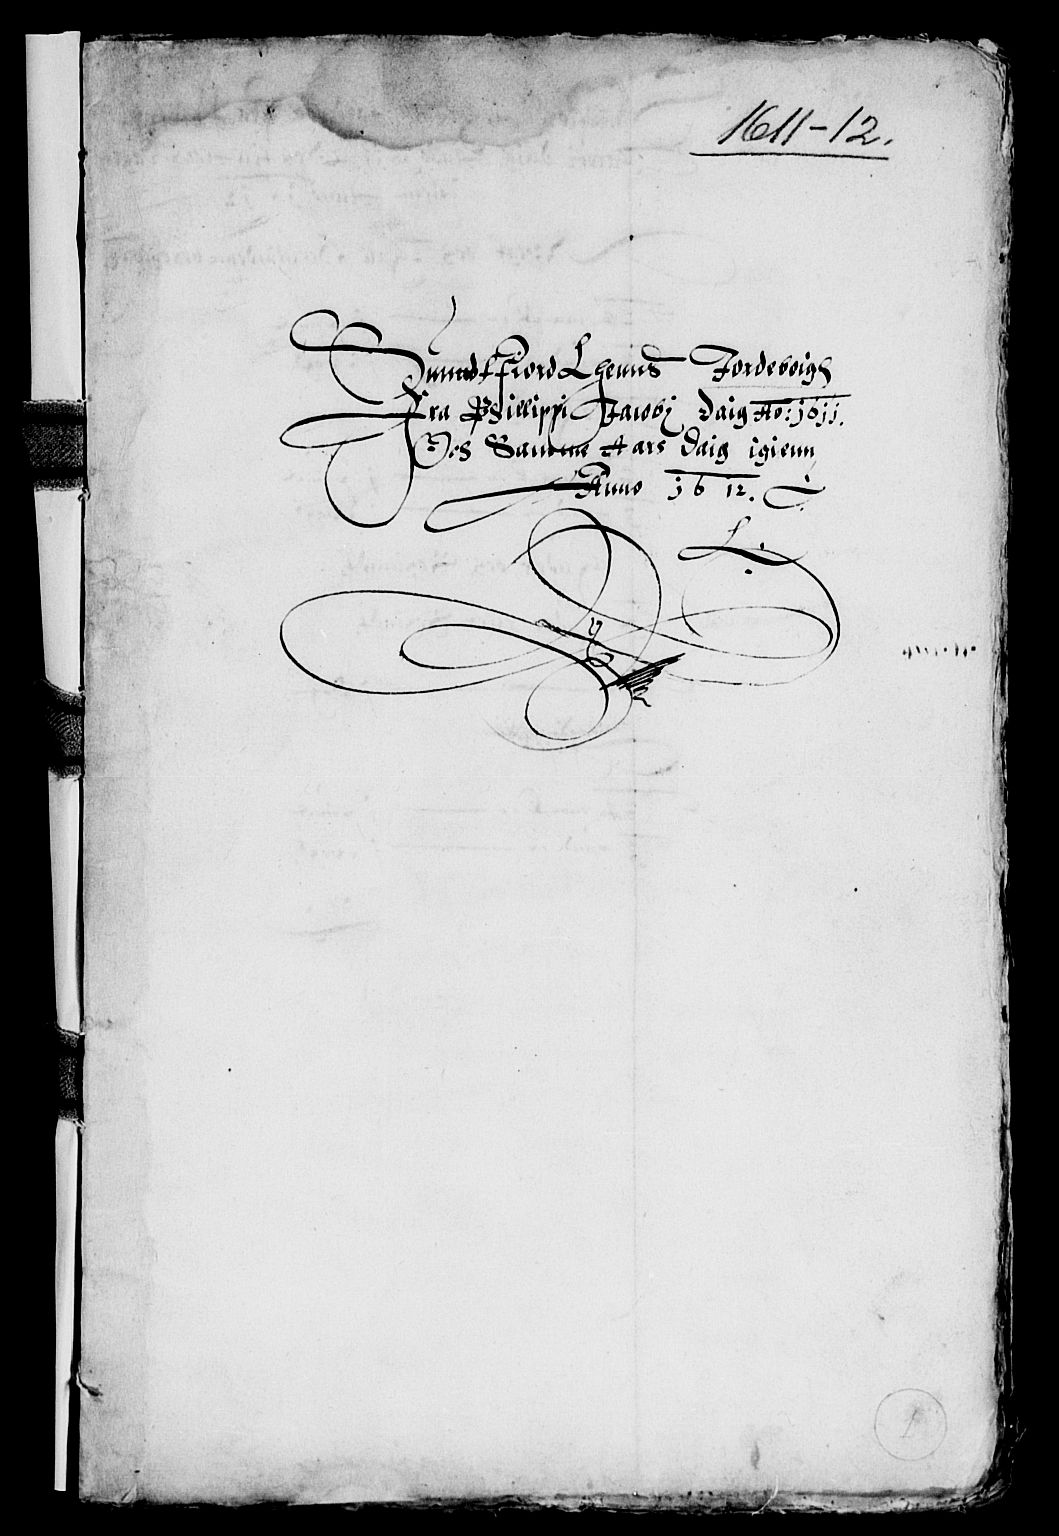 1611-12.
Sunndtfiord Lhenns Jordeboigh
Fra Phillippi Jacobj daig Ao: 1611.
Och Samme Aars daig igienn
Anno 1612.
1